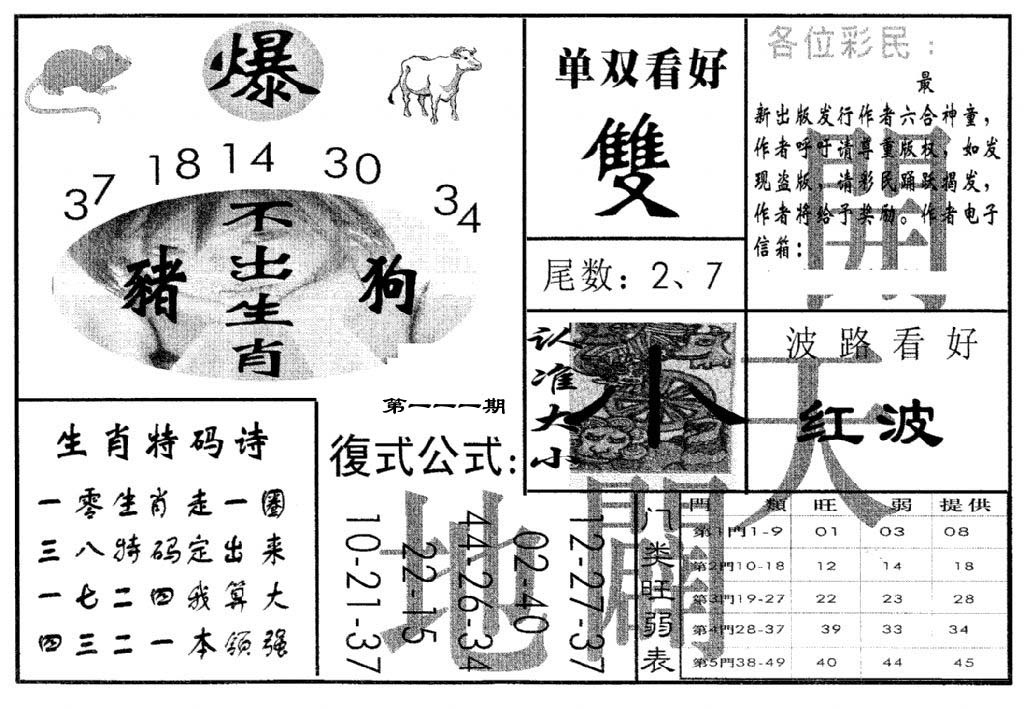 爆
37 18 14 30 34
不出生肖
豬
狗
单双看好
雙
尾数：2、7
各位彩民：
最
新出版发行作者六合神童，
作者呼吁请尊重版权，如发
现盗版，请彩民踊跃揭发，
作者将给予奖励。作者电子
信箱：
開
认准大小
小
波路看好
红波
天
第一一一期
生肖特码诗
一零生肖走一圈
三八特码定出来
一七二四我算大
四三二一本领强
復式公式：
10-21-37
22-15
44-26-34
02-40
12-27-37
地
開
门类旺弱表
門 類 旺 弱 提供
第1門1-9 01 03 08
第2門10-18 12 14 18
第3門19-27 22 23 28
第4門28-37 39 33 34
第5門38-49 40 44 45